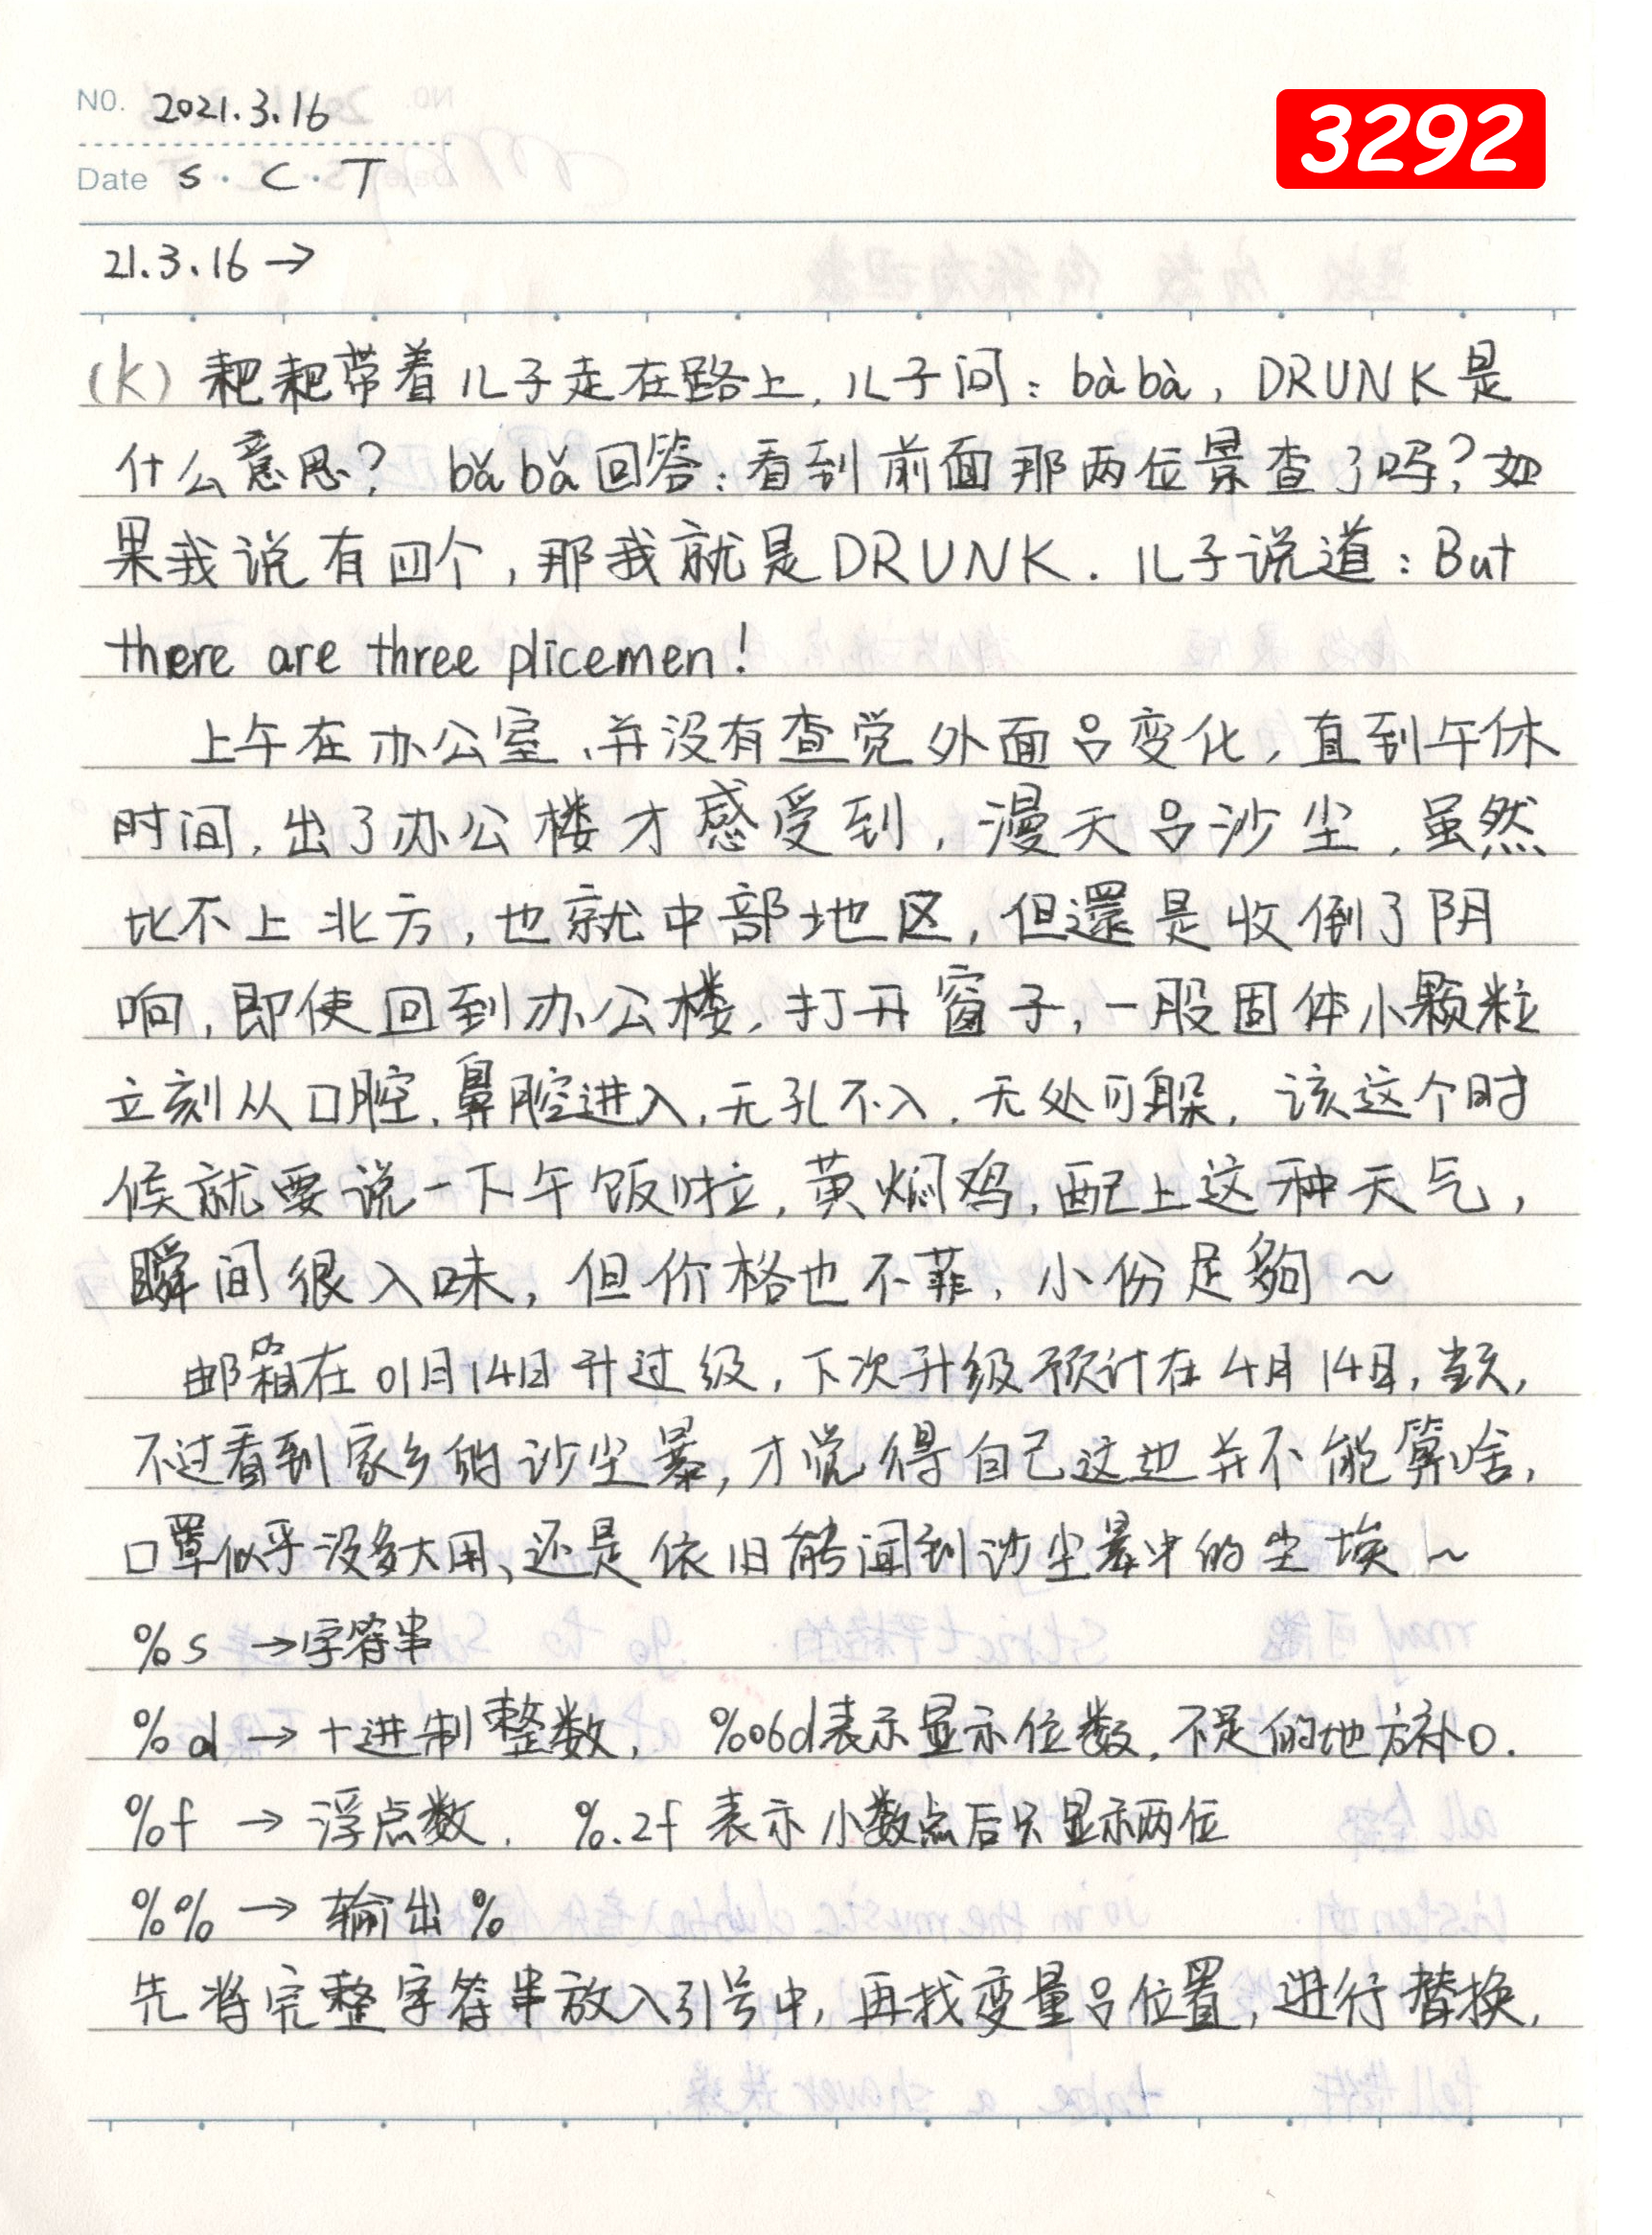 NO. 2021.3.16
3292
Date S·C·T
21.3.16→
(K) 耙耙带着儿子走在路上,儿子问:bàbà,DRUNK是
什么意思? bǎbǎ回答:看到前面那两位景查了吗?如
果我说有四个,那我就是DRUNK.儿子说道:But
there are three plicemen!
上午在办公室、并没有查觉外面吕变化,直到午休
时间,出了办公楼才感受到,漫天吕沙尘,虽然
比不上北方,也就中部地区,但還是收倒了阴
响,即使回到办公楼,打开窗子,一股固体小颗粒
立刻从口腔、鼻腔进入,无孔不入,无处可躲,该这个时
候就要说一下午饭啦,黄焖鸡,配上这种天气,
瞬间很入味,但价格也不菲,小份足夠~
邮箱在01月14日升过级,下次升级预计在4月14日,当天,
不过看到家乡的沙尘暴,才觉得自己这边并不能算啥,
口罩似乎没多大用、还是依旧能闻到沙尘暴中的尘埃~
%s →字符串
%d → 十进制整数, %06d表示显示位数,不足的地方补0.
%f → 浮点数, %.2f 表示小数点后只显示两位
%% → 输出%
先将完整字符串放入引号中,再找变量吕位置,进行替换,